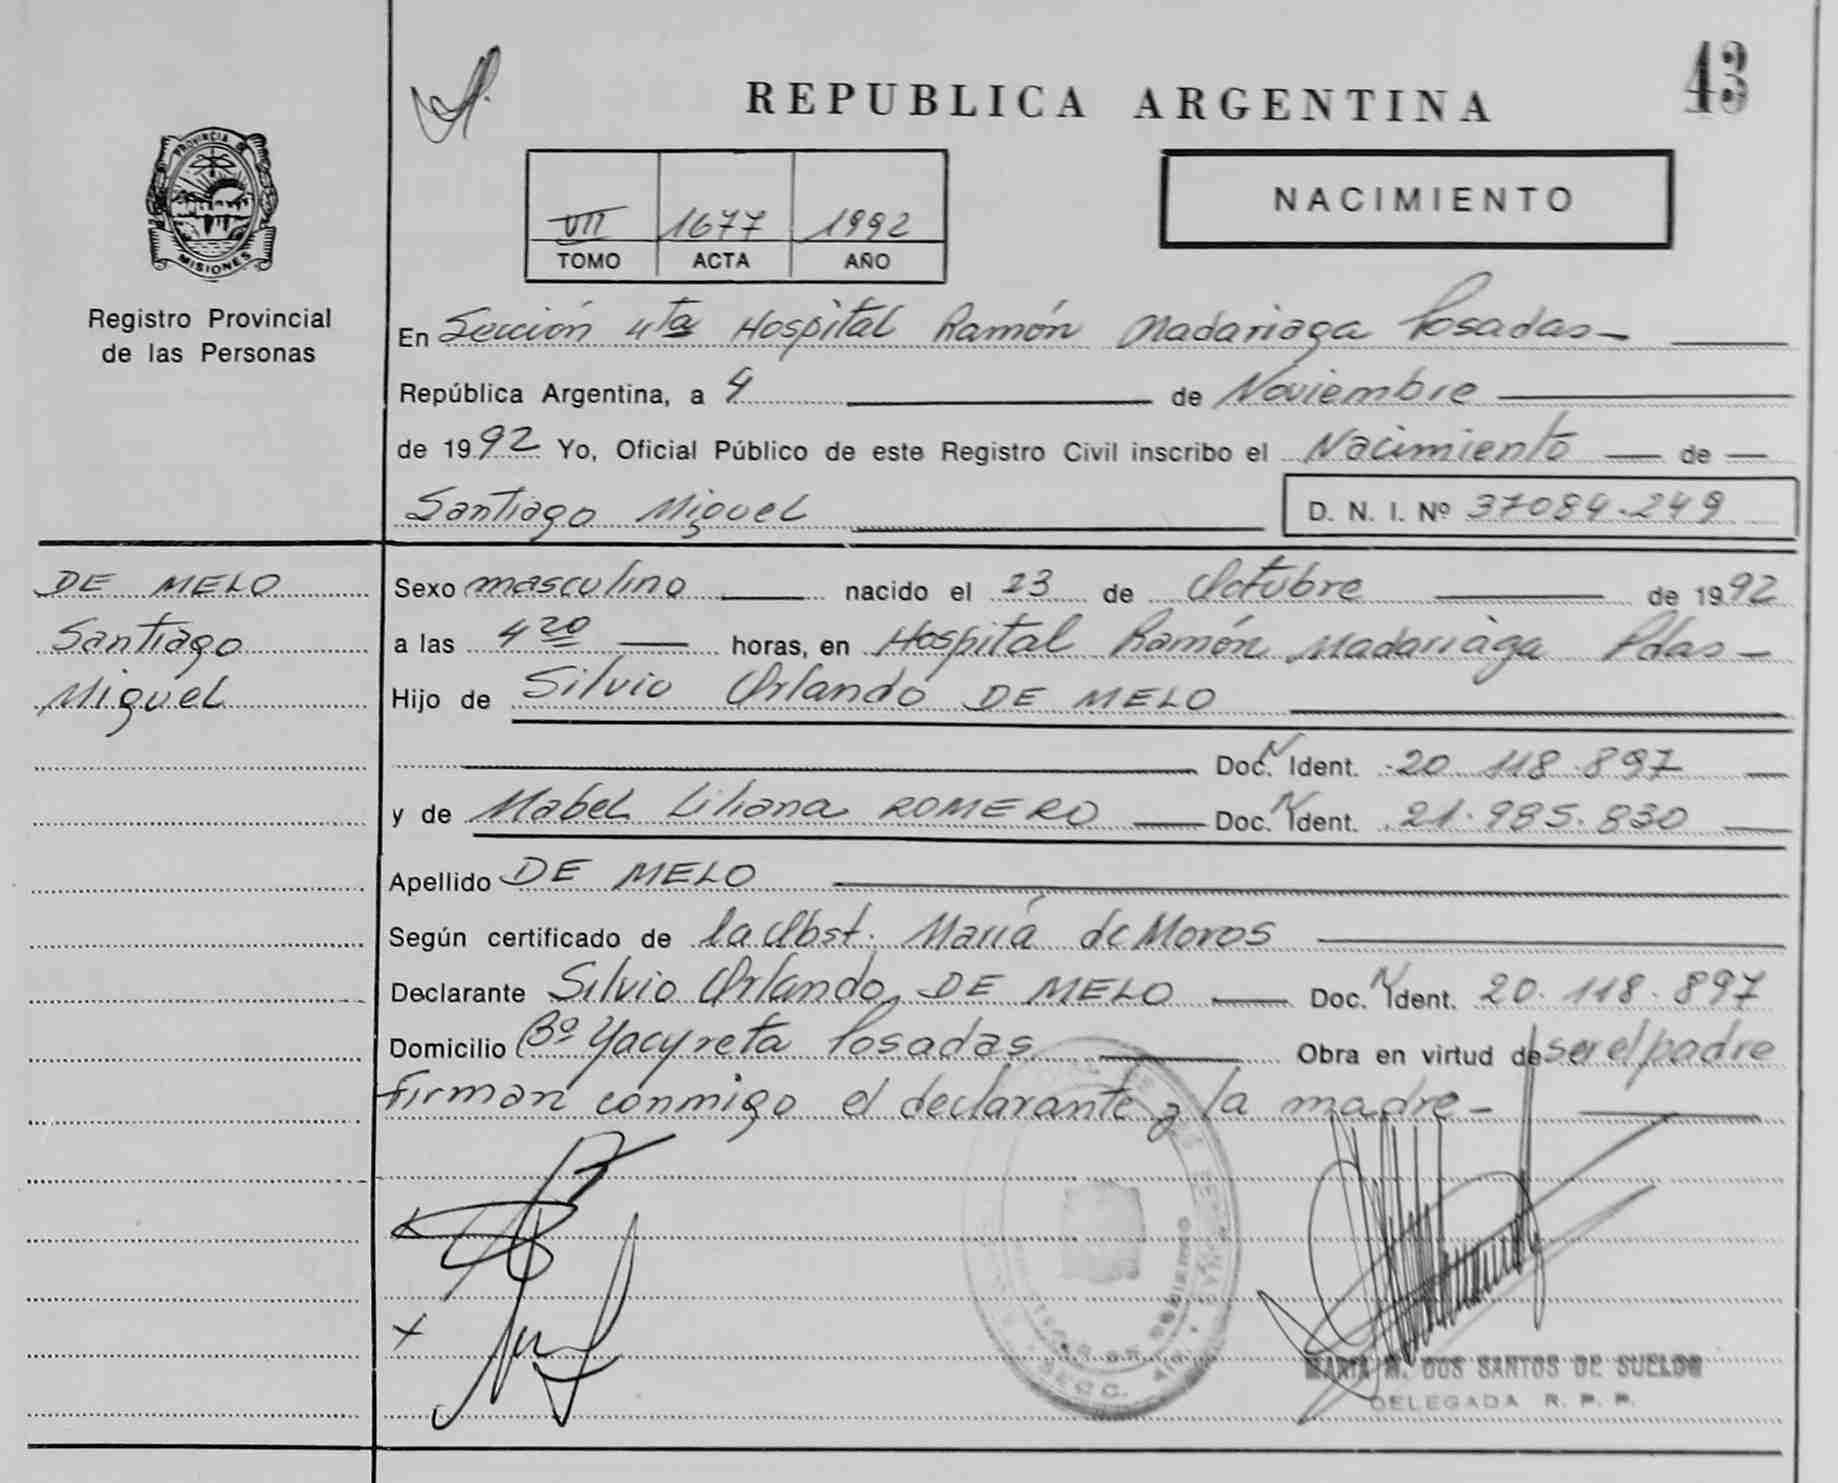 43
REPUBLICA ARGENTINA
NACIMIENTO
VII 1677 1992
TOMO ACTA AÑO
PROVINCIA DE
MISIONES
Registro Provincial
de las Personas
En Sección 4ta Hospital Ramón Madariaga Posadas-
República Argentina, a 4 de Noviembre
de 1992 Yo, Oficial Público de este Registro Civil inscribo el Nacimiento de
Santiago Miguel D. N. I. Nº 37084.249
DE MELO
Santiago
Miguel
Sexo masculino nacido el 23 de Octubre de 1992
a las 4 20 horas, en Hospital Ramón Madariaga Pdas-
Hijo de Silvio Orlando DE MELO
Doc. N Ident. 20.118.897
y de Mabel Liliana ROMERO Doc. N Ident. 21.985.830
Apellido DE MELO
Según certificado de la Obst. María de Moros
Declarante Silvio Orlando DE MELO Doc. N Ident. 20.118.897
Domicilio Bº Yacyreta Posadas Obra en virtud de ser el padre
firman conmigo el declarante y la madre-
MARIA M. DOS SANTOS DE SUELDO
DELEGADA R. P. P.